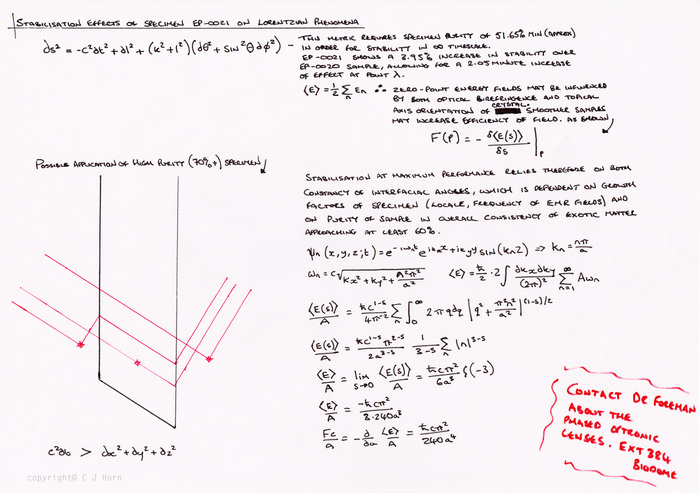 STABILISATION EFFECTS OF SPECIMEN EP-0021 ON LORENTZIAN PHENOMENA
ds² = -c²dt² + dl² + (k²+l²)(dθ² + sin²θdφ²) -
THIS METRIC REQUIRES SPECIMEN PURITY OF 51.65% MIN (APPROX)
IN ORDER FOR STABILITY IN ∞ TIMESCALE.
EP-0021 SHOWS A 3.95% INCREASE IN STABILITY OVER
EP-0020 SAMPLE, ALLOWING FOR A 2.05 MINUTE INCREASE
OF EFFECT AT POINT λ.
⟨E⟩ = ½ Σn En ∴ ZERO-POINT ENERGY FIELDS MAY BE INFLUENCED
BY BOTH OPTICAL BIREFRINGENCE AND TOPICAL
AXIS ORIENTATION OF CRYSTAL. SMOOTHER SAMPLES
MAY INCREASE EFFICIENCY OF FIELD. AS SHOWN
F(p) = - δ⟨E(s)⟩/δs |p
POSSIBLE APPLICATION OF HIGH PURITY (70%+) SPECIMEN
STABILISATION AT MAXIMUM PERFORMANCE RELIES THEREFORE ON BOTH
CONSTANCY OF INTERFACIAL ANGLES, WHICH IS DEPENDENT ON GROWTH
FACTORS OF SPECIMEN (LOCALE, FREQUENCY OF EMR FIELDS) AND
ON PURITY OF SAMPLE IN OVERALL CONSISTENCY OF EXOTIC MATTER
APPROACHING AT LEAST 60%.
ψn(x,y,z;t) = e^-iωnt e^ikxx+ikyy sin(knz) ⇒ kn = nπ/a
ωn = c√(kx² + ky² + n²π²/a²) ⟨E⟩ = ħ/2 · 2 ∫ dkxdky/(2π)² Σn=1^∞ Aωn
⟨E(s)⟩/A = ħc^1-s/4π² Σn ∫0^∞ 2πqdq |q² + π²n²/a²|^(1-s)/2
⟨E(s)⟩/A = ħc^1-s π^2-s/2a^3-s 1/3-s Σn |n|^3-s
⟨E⟩/A = lim s→0 ⟨E(s)⟩/A = ħcπ²/6a³ ζ(-3)
⟨E⟩/A = -ħcπ²/3·240a³
Fc/A = - d/da ⟨E⟩/A = ħcπ²/240a⁴
CONTACT DR FOREMAN
ABOUT THE
PHASED OPTRONIC
LENSES. EXT 384
BIODOME
> dx² + dy² + dz²
copyright© C J Horn